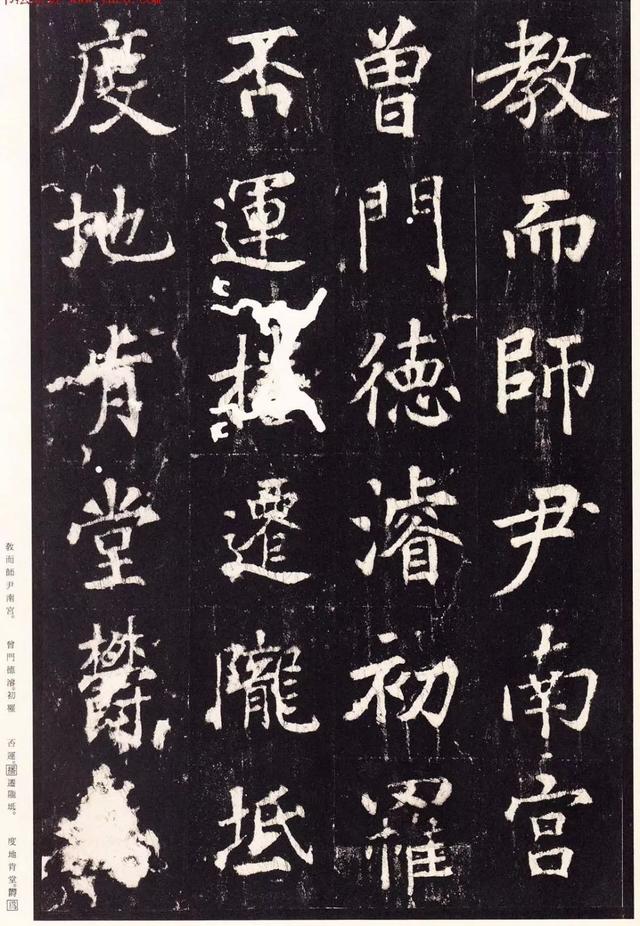 教而師尹南宮
曾門德濬初羅
否運遷隴坻
度地肯堂欝
教而師尹南宮。
曾門德濬初羅
否運遷隴坻。
度地肯堂。